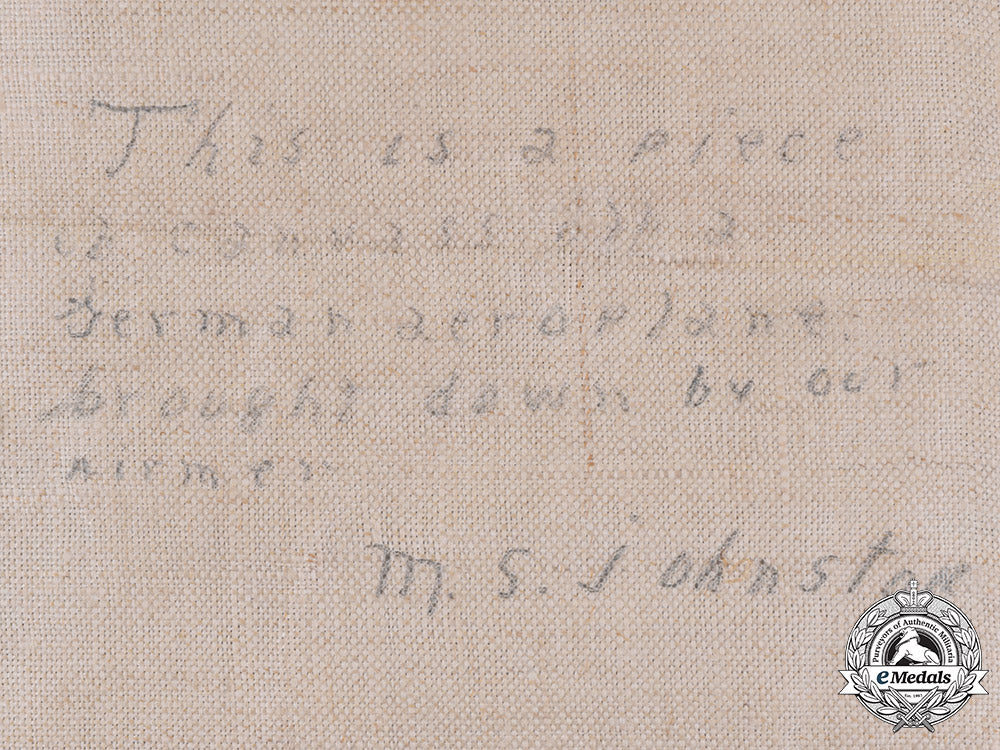 This is a piece
of cannvass off a
German aeroplane.
brought down by our
airmen
M. S. Johnston
Purveyors of Authentic Militaria
eMedals